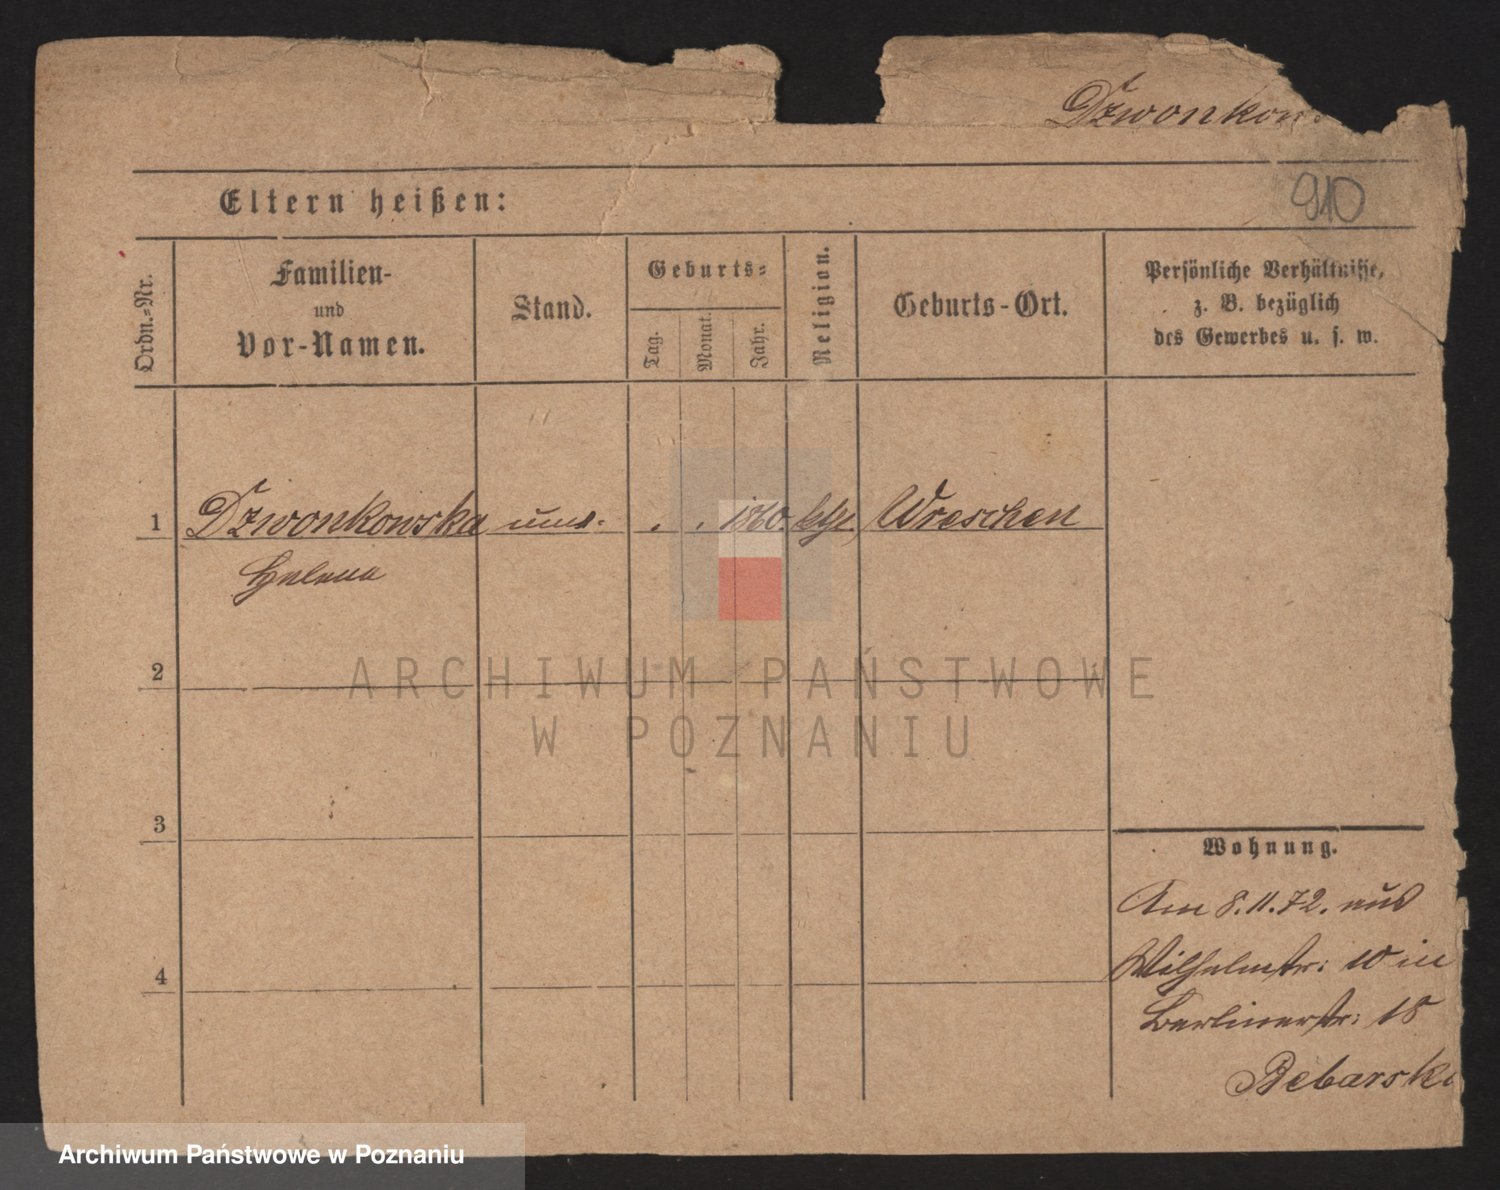 Dzwonkow
910
Eltern heißen:
Ordn.-Nr.
Familien-
und
Vor-Namen.
Stand.
Geburts-
Tag.
Monat.
Jahr.
Religion.
Geburts-Ort.
Persönliche Verhältnisse,
z. B. bezüglich
des Gewerbes u. s. w.
1 Dzwonkowska . . 1860 kth Wreschen
Helena
2
3
4
Wohnung.
Am 8.11.72. aus
Wilhelmstr: 10 in
Berlinerstr: 18
Bebarski
ARCHIWUM PAŃSTWOWE
W POZNANIU
Archiwum Państwowe w Poznaniu